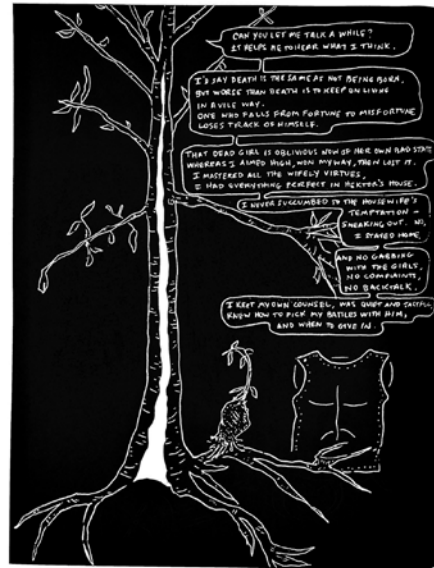 CAN YOU LET ME TALK A WHILE?
IT HELPS ME TO HEAR WHAT I THINK.
I'D SAY DEATH IS THE SAME AS NOT BEING BORN,
BUT WORSE THAN DEATH IS TO KEEP ON LIVING
IN A VILE WAY.
ONE WHO FALLS FROM FORTUNE TO MISFORTUNE
LOSES TRACK OF HIMSELF.
THAT DEAD GIRL IS OBLIVIOUS NOW OF HER OWN BAD STATE
WHEREAS I AIMED HIGH, WON MY WAY, THEN LOST IT.
I MASTERED ALL THE WIFELY VIRTUES,
I HAD EVERYTHING PERFECT IN HEKTOR'S HOUSE.
I NEVER SUCCUMBED TO THE HOUSEWIFE'S
TEMPTATION –
SNEAKING OUT. NO,
I STAYED HOME.
AND NO GABBING
WITH THE GIRLS,
NO COMPLAINTS,
NO BACKTALK.
I KEPT MY OWN COUNSEL, WAS QUIET AND TACTFUL,
KNEW HOW TO PICK MY BATTLES WITH HIM,
AND WHEN TO GIVE IN.